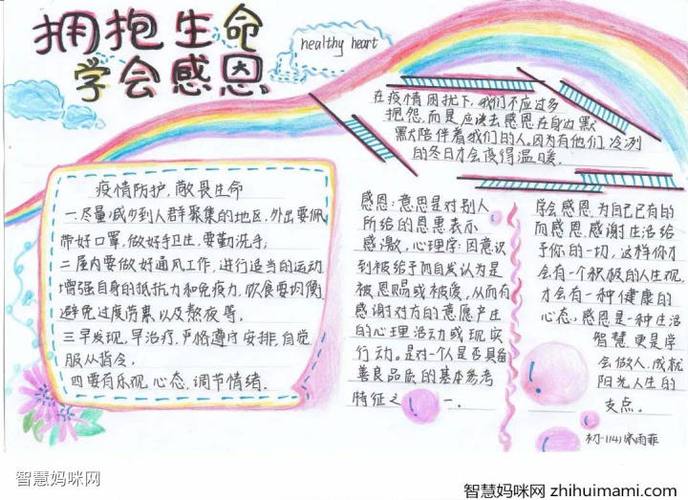 拥抱生命
学会感恩
healthy heart
在疫情困扰下,我们不应过多
抱怨,而是应该去感恩在身边默
默陪伴着我们的人。因为有他们,冷冽
的冬日才会变得温暖。
疫情防护,敬畏生命
一.尽量减少到人群聚集的地区,外出要佩
带好口罩,做好手卫生,要勤洗手;
二屋内要做好通风工作,进行适当的运动
增强自身的抵抗力和免疫力,饮食要均衡
避免过度劳累以及熬夜等,
三早发现,早治疗,严格遵守安排,自觉
服从指令.
四要有乐观心态,调节情绪.
感恩:意思是对别人
所给的恩惠表示
感激,心理学:因意识
到被给予而自发认为是
被恩赐或被爱,从而有
感谢对方的意愿产生
的心理活动或现实
行动。是对一个人是否具备
善良品质的基本参考
特征之一.
学会感恩,为自己已有的
而感恩,感谢生活给
予你的一切,这样你才
会有一个积极的人生观,
才会有一种健康的
心态,感恩是一种生活
智慧,更是学
会做人,成就
阳光人生的
支点。
智慧妈咪网
智慧妈咪网 zhihuimami.com